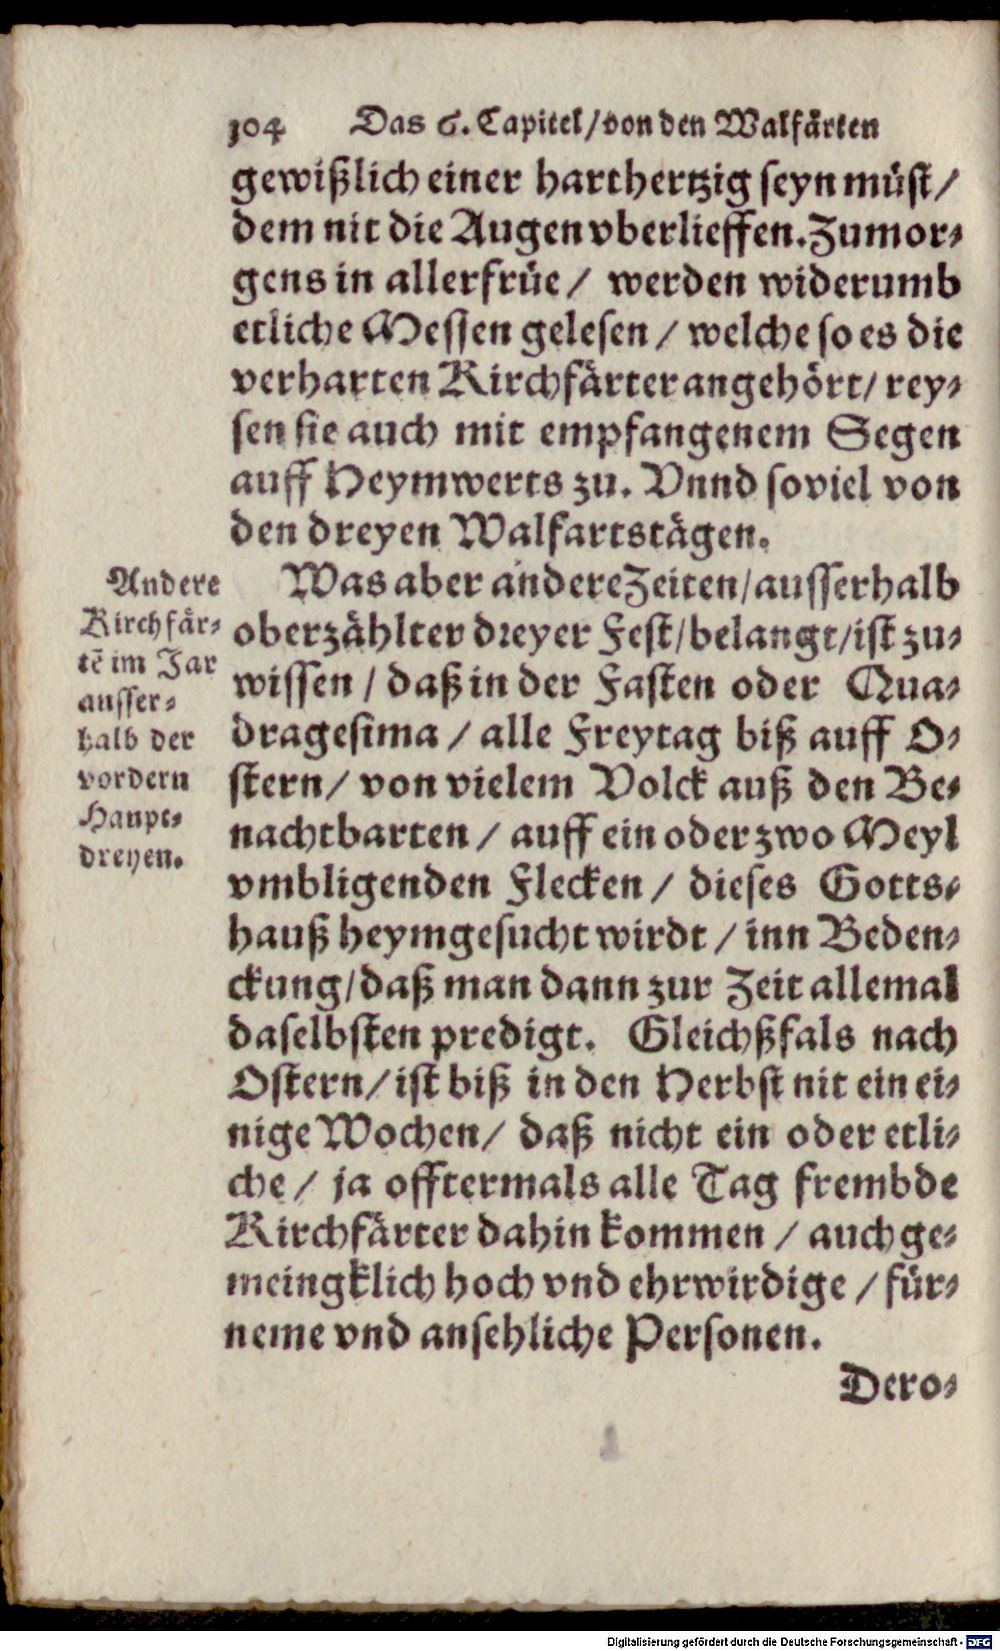 104 Das 6. Capitel/von den Walfärten
gewißlich einer harthertzig seyn müst/
dem nit die Augen vberlieffen. Zumor-
gens in allerfrüe/ werden widerumb
etliche Messen gelesen / welche so es die
verharten Kirchfärter angehört/ rey-
sen sie auch mit empfangenem Segen
auff Heymwerts zu. Vnnd soviel von
den dreyen Walfartstägen.
Andere
Kirchfär-
tẽ im Jar
ausser-
halb der
vordern
Haupt-
dreyen.
Was aber andere Zeiten/ausserhalb
oberzählter dreyer Fest/belangt/ist zu-
wissen / daß in der Fasten oder Qua-
dragesima / alle Freytag biß auff O-
stern/ von vielem Volck auß den Be-
nachtbarten / auff ein oder zwo Meyl
vmbligenden Flecken / dieses Gotts-
hauß heymgesucht wirdt / inn Beden-
ckung/daß man dann zur Zeit allemal
daselbsten predigt. Gleichßfals nach
Ostern/ist biß in den Herbst nit ein ei-
nige Wochen/ daß nicht ein oder etli-
che / ja offtermals alle Tag frembde
Kirchfärter dahin kommen / auch ge-
meingklich hoch vnd ehrwirdige / für-
neme vnd ansehliche Personen.
Dero-
Digitalisierung gefördert durch die Deutsche Forschungsgemeinschaft - DFG